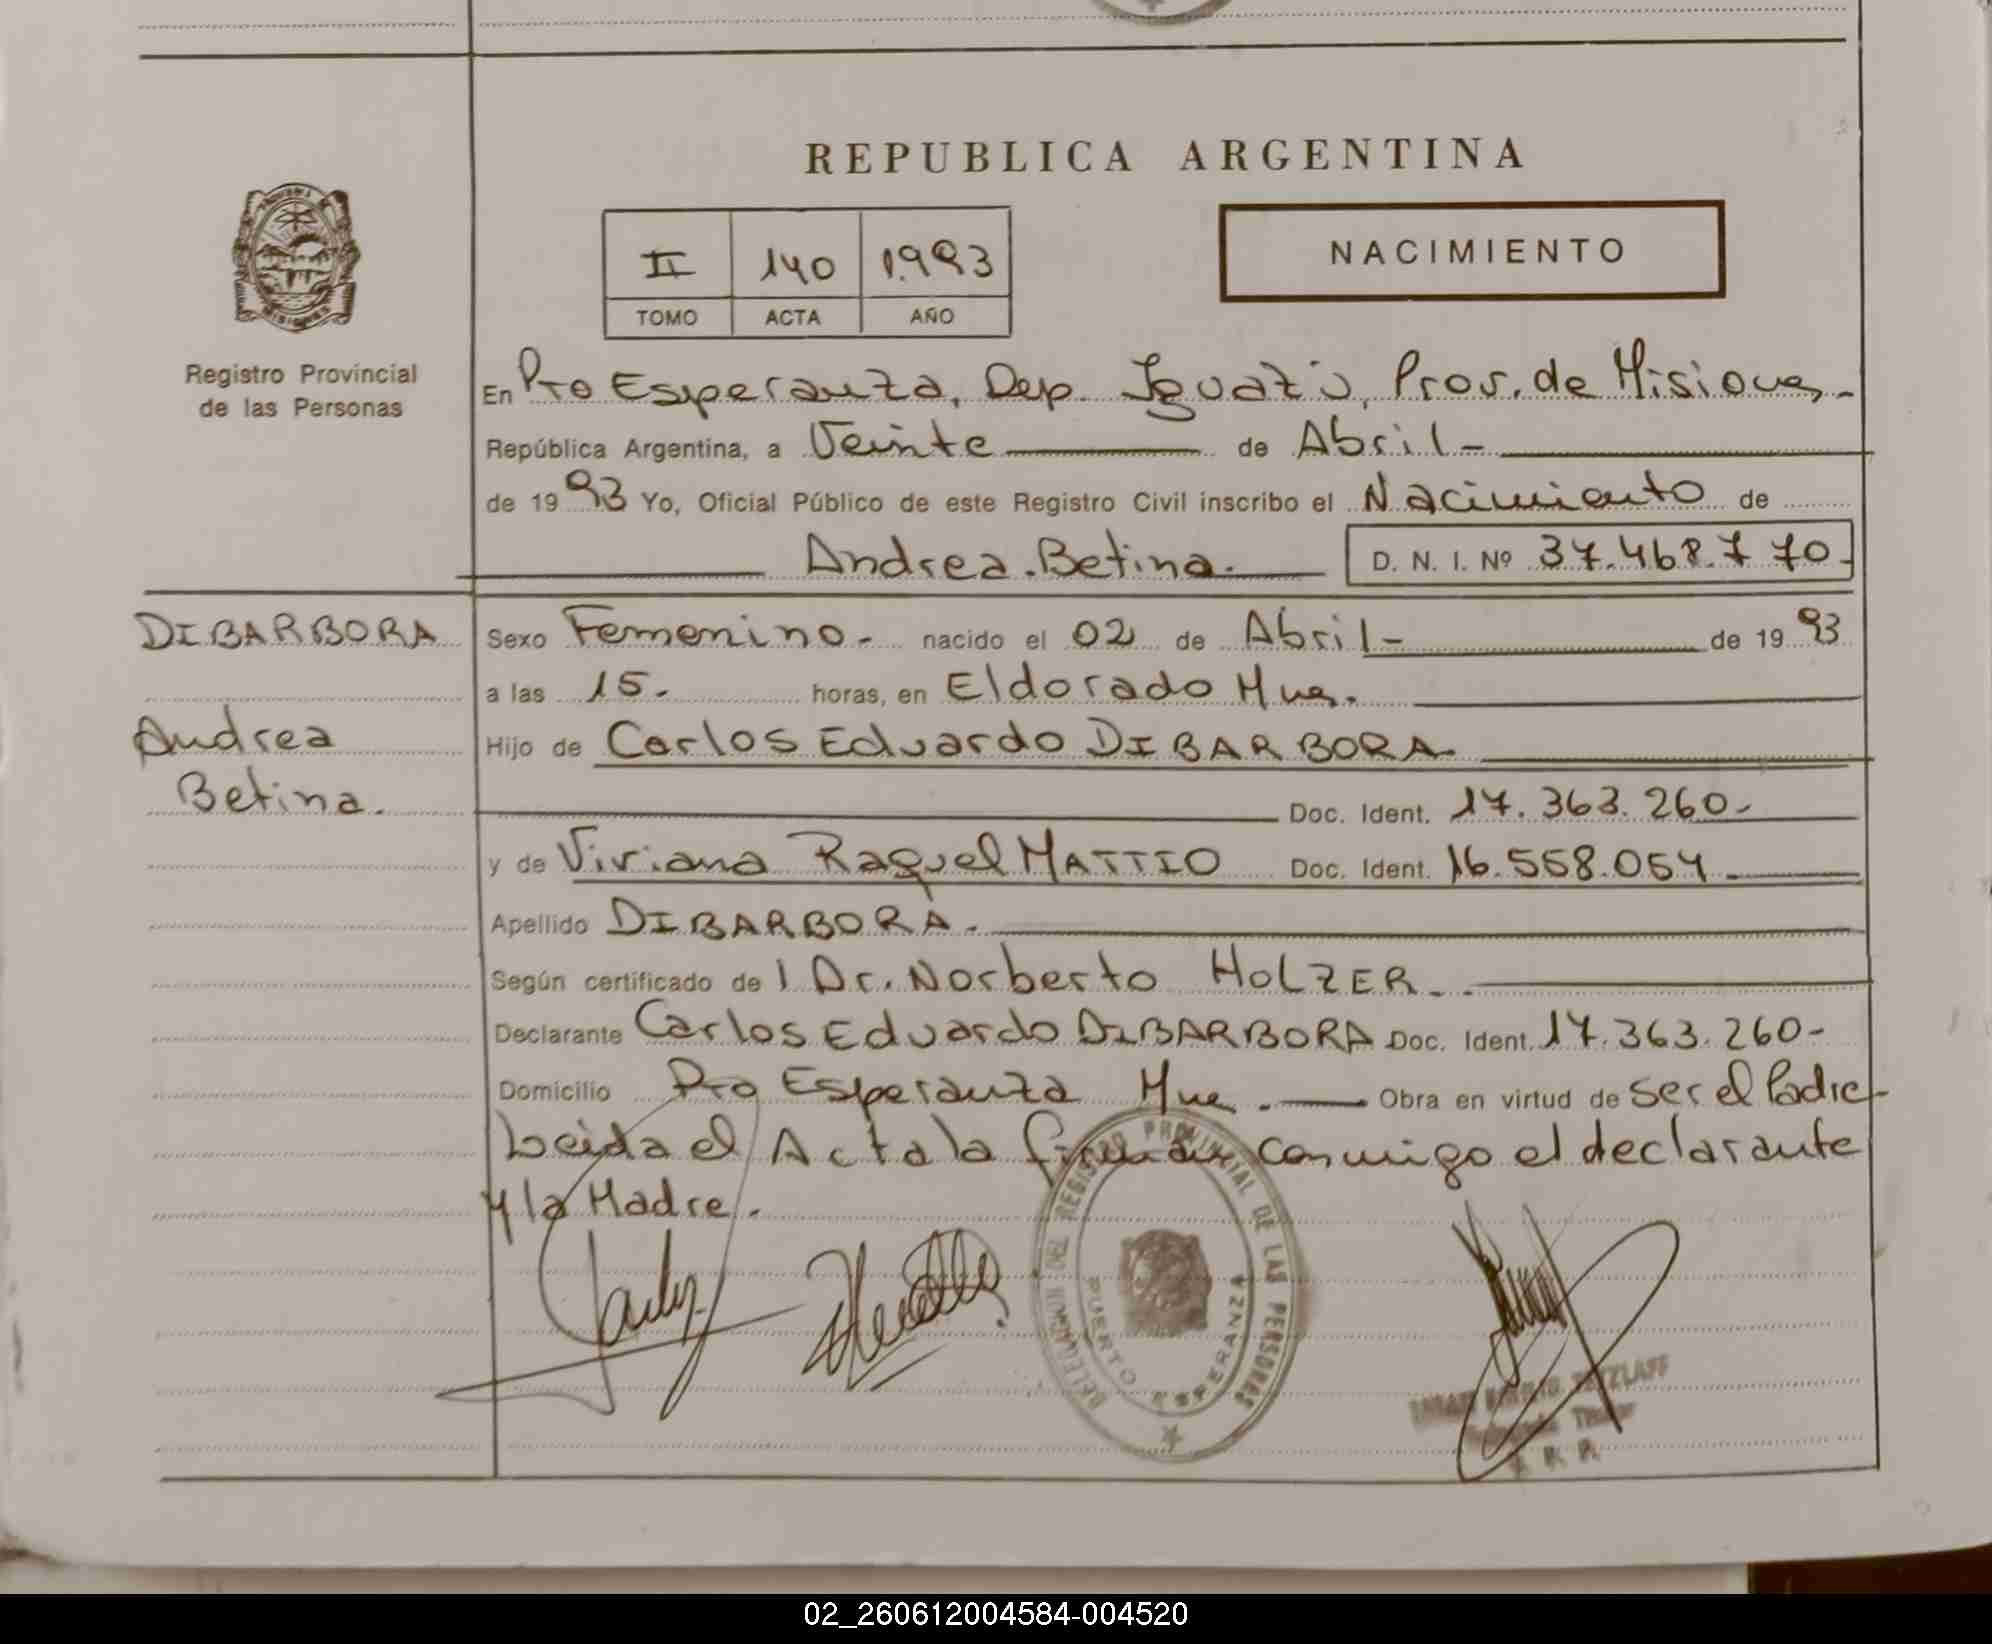 REPUBLICA ARGENTINA
II 140 1.993
TOMO ACTA AÑO
NACIMIENTO
MISIONES
Registro Provincial
de las Personas
En Pto Esperanza, Dep. Iguazú, Prov. de Misiones-
República Argentina, a Veinte de Abril-
de 1993 Yo, Oficial Público de este Registro Civil inscribo el Nacimiento de
Andrea Betina. D. N. I. Nº 37.468.770-
DIBARBORA
Andrea
Betina.
Sexo Femenino.- nacido el 02 de Abril- de 1993
a las 15. horas, en Eldorado Mnes.
Hijo de Carlos Eduardo DIBARBORA
Doc. Ident. 17.363.260-
y de Viviana Raquel MATTIO Doc. Ident. 16.558.054
Apellido DIBARBORA.
Según certificado de l Dr. Norberto HOLZER.
Declarante Carlos Eduardo DIBARBORA Doc. Ident. 17.363.260-
Domicilio Pto Esperanza Mne. Obra en virtud de ser el Padre-
Leida el Acta la firman conmigo el declarante
y la Madre.
DELEGACION DEL REGISTRO PROVINCIAL DE LAS PERSONAS
PUERTO ESPERANZA
Titular
02_260612004584-004520